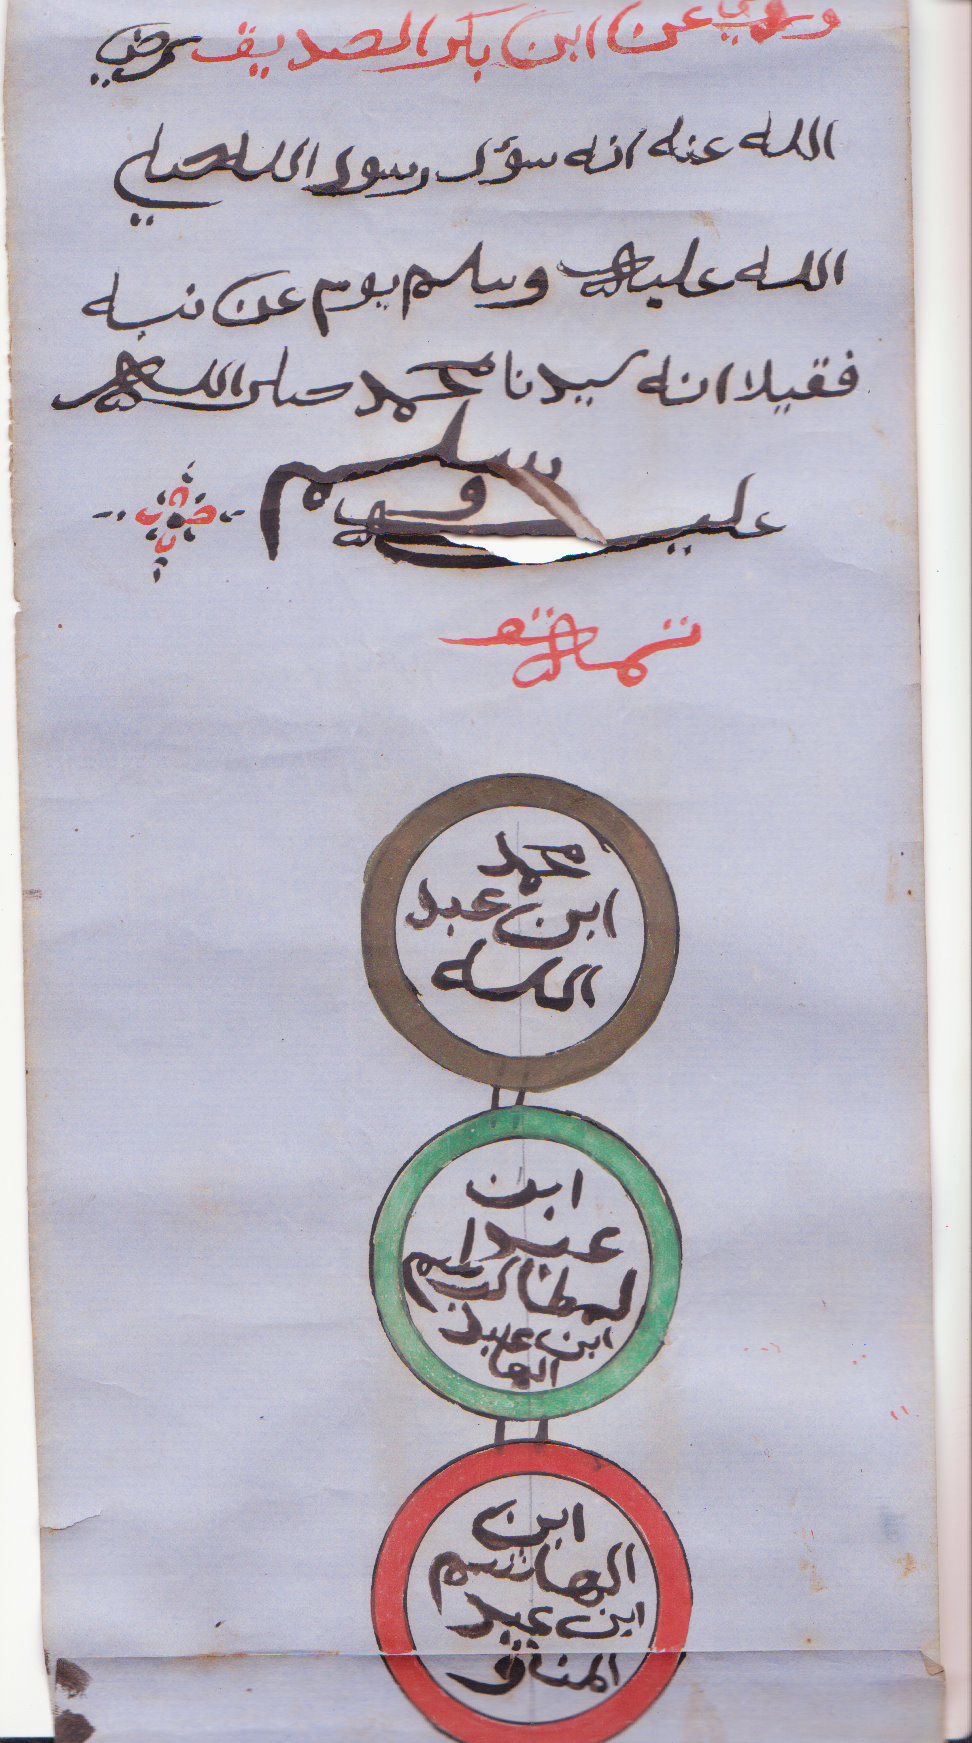 وروي عن ابن بكر الصديق رضي
الله عنه انه سؤل رسول الله صلي
الله عليه وسلم يوم عن نسبه
فقيلا انه سيدنا محمد صلى الله
عليه وسلم
تمت
محمد
ابن عبد
الله
ابن
عبد ا
لمطلب
ابن عبد
ابن
الهاشم
ابن عبد
المناف